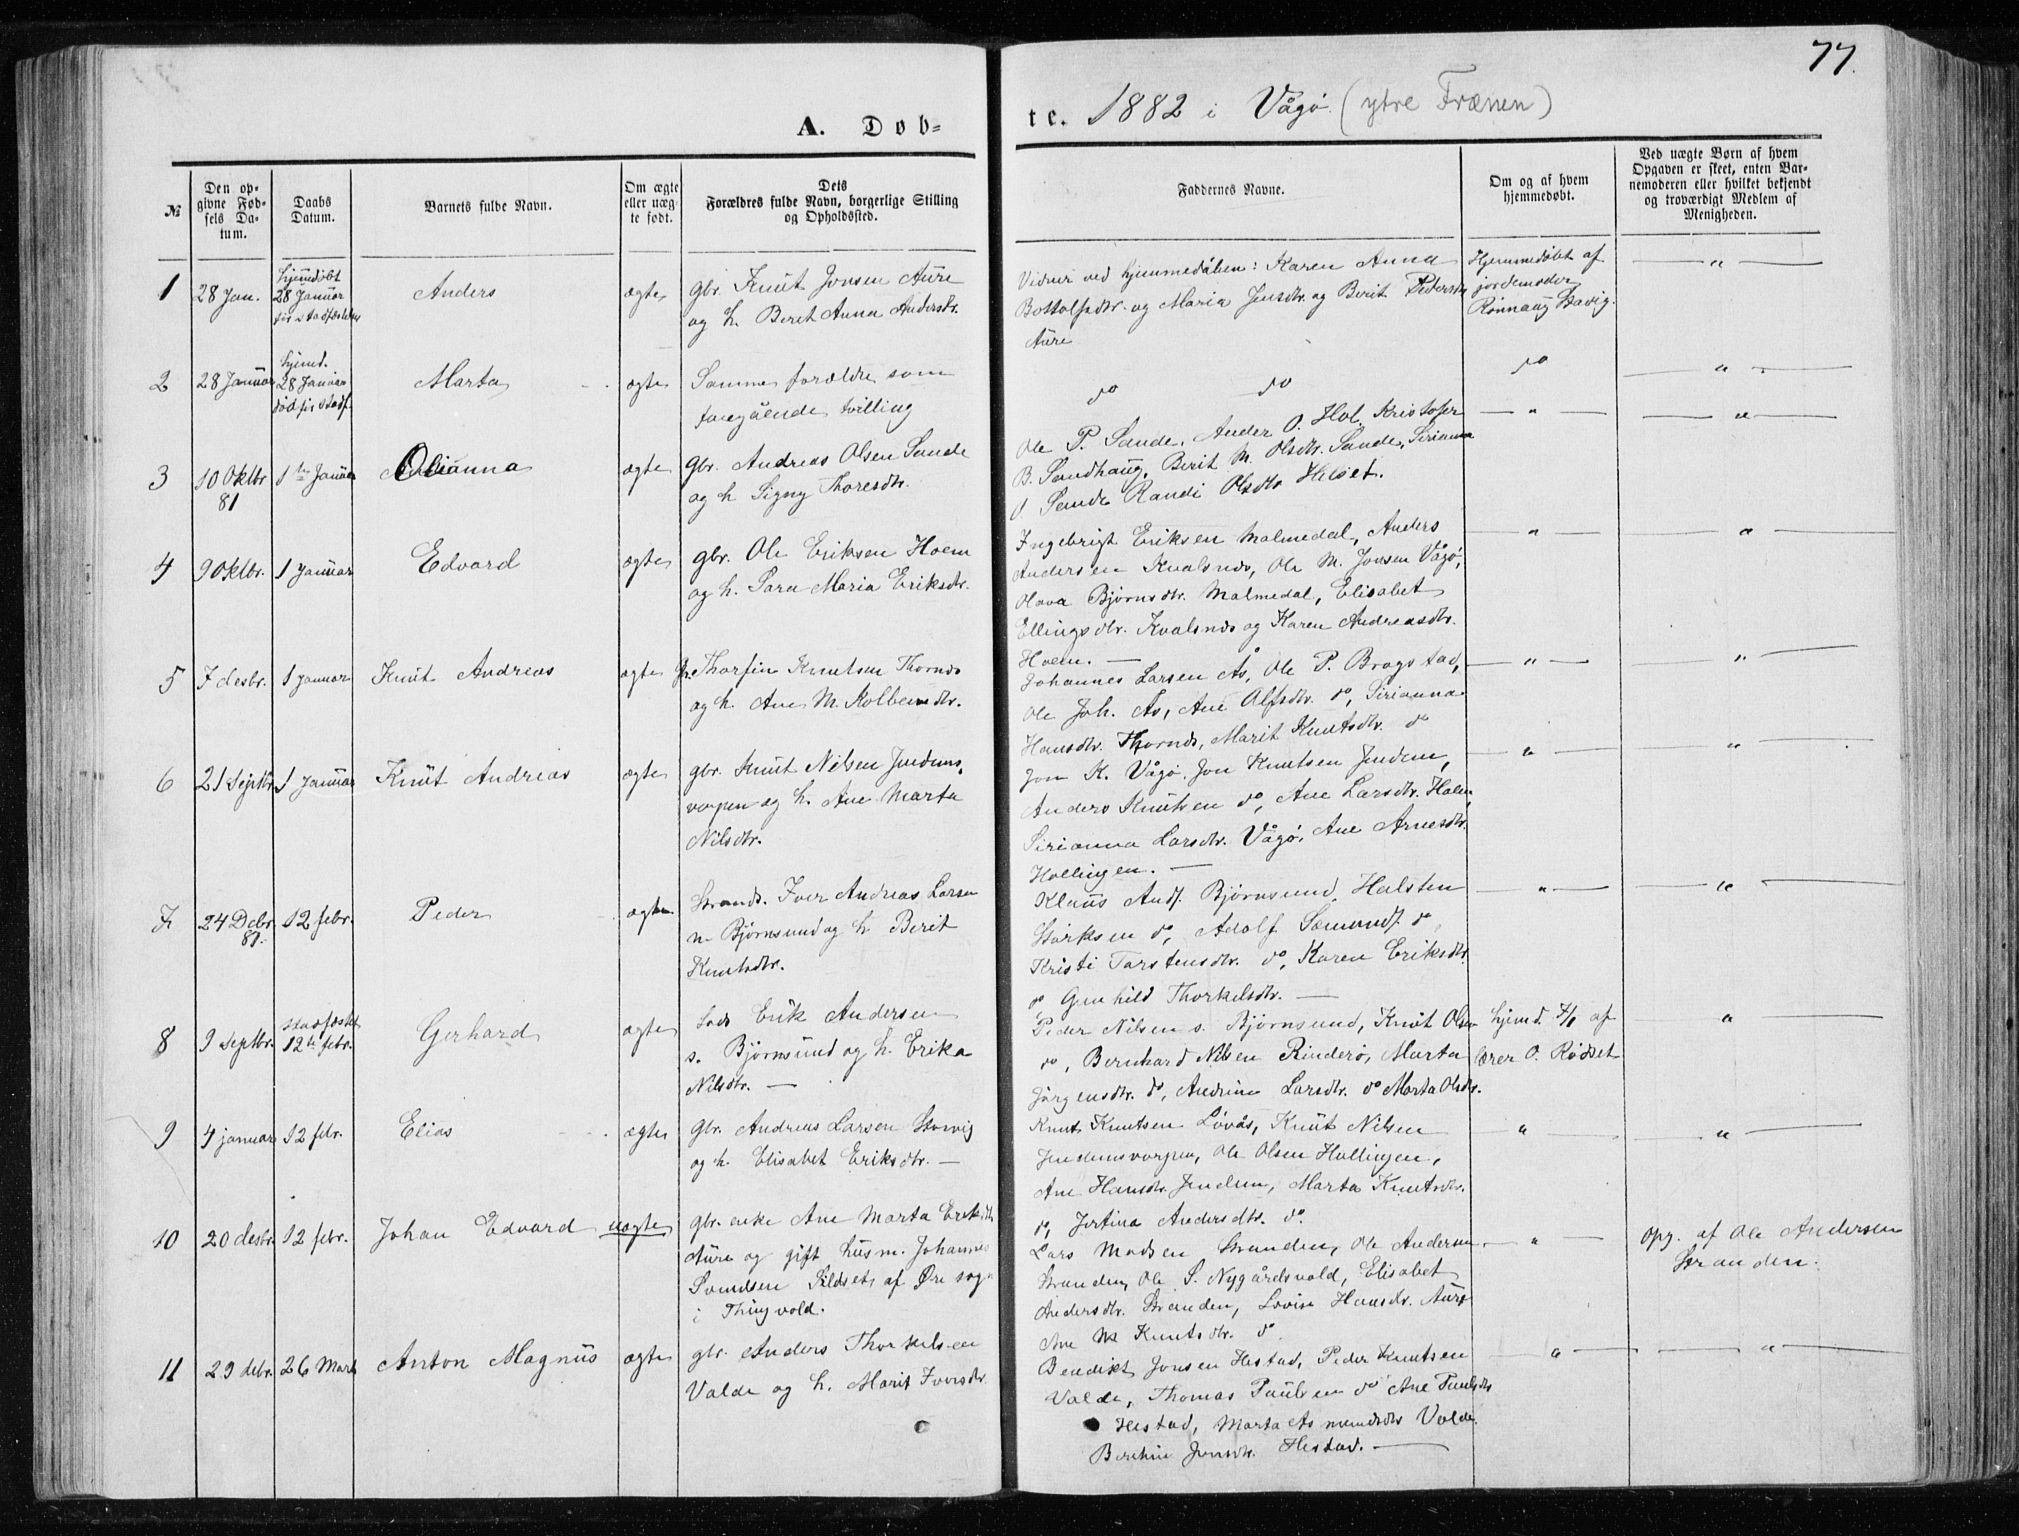 77.
A. Døb-
te. 1882 i Vågø (ytre Frænen)
№
Den op-
givne Fød-
sels Da-
tum.
Daabs
Datum.
Barnets fulde Navn.
Om ægte
eller uæg-
te født.
Dets
Forældres fulde Navn, borgerlige Stilling
og Opholdssted.
Faddernes Navne.
Om og af hvem
hjemmedøbt.
Ved uægte Børn af hvem
Opgaven er skeet, enten Bar-
nemoderen eller hvilket bekjendt
og troværdigt Medlem af
Menigheden.
1
28 Jan.
hjemdöbt
28 Januar
Anders
ægte
gbr. Knut Jonsen Aure
og h. Beret Anna Andersdtr.
Vidner ved hjemmedåben: Karen Anna
Bottolfsdtr. og Maria Jensdtr. og Berit Pedersdtr
Aure
Hjemmedöbt af
jordemoder
Rønnaug Stavig.
"
2
28 Januar
hjemd.
28 Januar
död før stadf.
Marta
ægte
Samme forældre som
foregående tvilling
do do
do
"
3
10 Oktbr
81
1ste Januar
Olianna
ægte
gbr. Andreas Olsen Sande
og h. Signy Thoresdtr.
Ole P. Sande, Ander O. Hol, Kristofer
B. Sandhaug, Berit M. Olsdtr. Sande, Sirianna
O. Sande Randi Olsdtr Hilset.
"
"
4
9 Oktbr.
1 Januar
Edvard
ægte
gbr. Ole Eriksen Hoem
og h. Sara Maria Eriksdtr.
Ingebrigt Eriksen Malmedal, Anders
Andersen Kvalsnes, Ole M. Jonsen Vågø,
Olava Bjørnsdtr. Malmedal, Elisabet
Ellingsdtr. Kvalsnes og Karen Andreasdtr.
Hoem.
"
"
5
7 desbr.
1 januar
Knut Andreas
ægte
Thorfin Knutsen Thornes
og h. Ane M. Kolbeinsdtr.
Johannes Larsen Ås, Ole P. Bragstad,
Ole Joh. Ås, Ane Alfsdtr. do, Sirianna
Hansdtr. Thornes, Marit Knutsdtr. do
"
"
6
21 Septbr.
1 Januar
Knut Andreas
ægte
gbr. Knut Nilsen Jendems-
varpen og h. Ane Marta
Nilsdtr.
Jon K. Vågø, Jon Knutsen Jendem,
Anders Knutsen do, Ane Larsdtr. Hoem,
Sirianna Larsdtr. Vågø, Ane Arnesdtr.
Hollingen.
"
"
7
24 Debr.
81.
12 febr.
Peder
ægte
Strands. Iver Andreas Larsen
n. Bjørnsund og h. Berit
Knutsdtr.
Klaus Andf. Bjørnsund, Halsten
Størksen do, Adolf Sæmundf. do,
Kristi Torstensdtr. do, Karen Eriksdtr.
do Gunhild Thorkelsdtr.
"
"
8
9 septbr.
stadfæstet
12te febr.
Gerhard
ægte
Erik Andersen
s. Bjørnsund og h. Erika
Nilsdtr.
Peder Nilsen s. Bjørnsund, Knut Olsen
do, Bernhard Nilsen Rinderø, Marta
Jørgensdtr. do, Andrine Larsdtr. do Marta Olsdtr.
hjemd. af
lærer O. Rødset
"
9
4 januar
12 febr.
Elias
ægte
gbr. Andreas Larsen Stavig
og h. Elisabet Eriksdtr.
Knut Knutsen Løvås, Knut Nilsen
Jendemsvarpen, Ole Olsen Hollingen,
Ane Hansdtr. Jendem, Marta Knutsdtr.
do, Jertina Andersdtr. do.
"
"
10
20 desbr.
12 febr.
Johan Edvard
uægte
gbr. enke Ane Marta Eriksdtr.
Aure og gift husm. Johannes
Svendsen Sildset af Øre sogn
i Thingvold.
Lars Madsen Stranden, Ole Andersen
Stranden, Ole S. Nygårdsvold, Elisabet
Andersdtr. Stranden, Lovise Hansdtr. Aure
Ane M Knutsdtr. do.
"
Opg. af Ole Andersen
Stranden.
11
29 debr.
26 Marts
Anton Magnus
ægte
gbr. Anders Thorkelsen
Valde og h. Marit Iversdtr.
Benedikt Jonsen Hestad, Peder Knutsen
Valde, Thomas Paulsen do Ane Paulsdtr
Hestad, Marta Asmundsdtr Valde
Jonsdtr. Hestad.
"
"